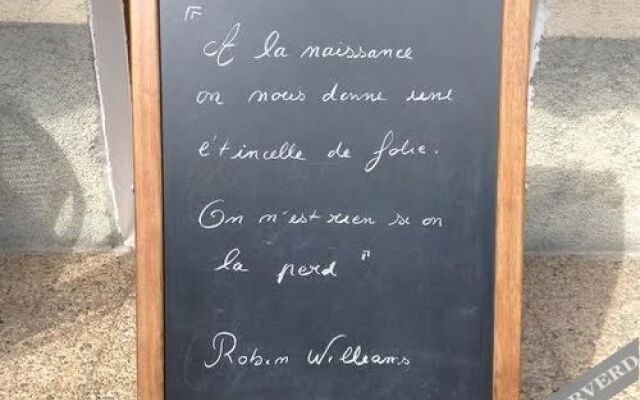 "
A la naissance
on nous donne une
étincelle de folie.
On n'est rien si on
la perd "
Robin Williams